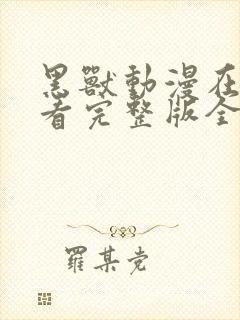 黑獸動漫在
看完整版全
羅某党